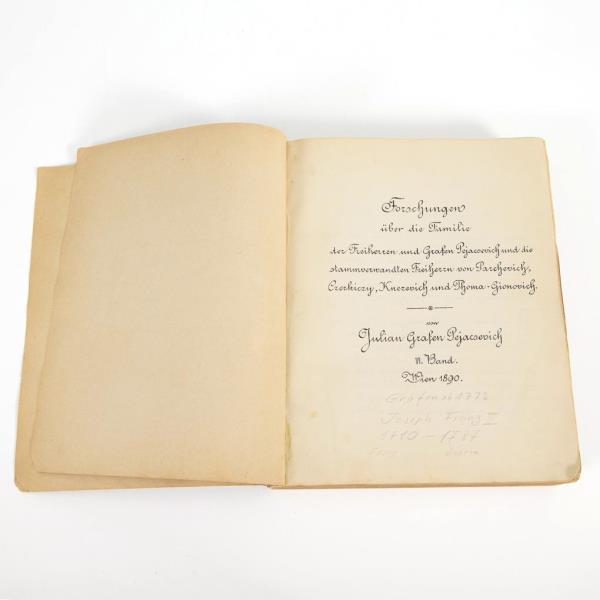 Forschungen
über die Familie
der Freiherren und Grafen Pejacsevich und die
stammverwandten Freiherrn von Parchevich,
Czerkiczy, Knezevich und Thoma-Gionovich.
von
Julian Grafen Pejacsevich
VI. Band.
Wien 1890.
Grafen ab 1772
Joseph Franz II
1710 - 1787